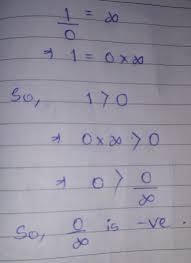 1/0 = ∞
⇒ 1 = 0 × ∞
So, 1 > 0
⇒ 0 × ∞ > 0
⇒ 0 > 0/∞
So, 0/∞ is -ve.